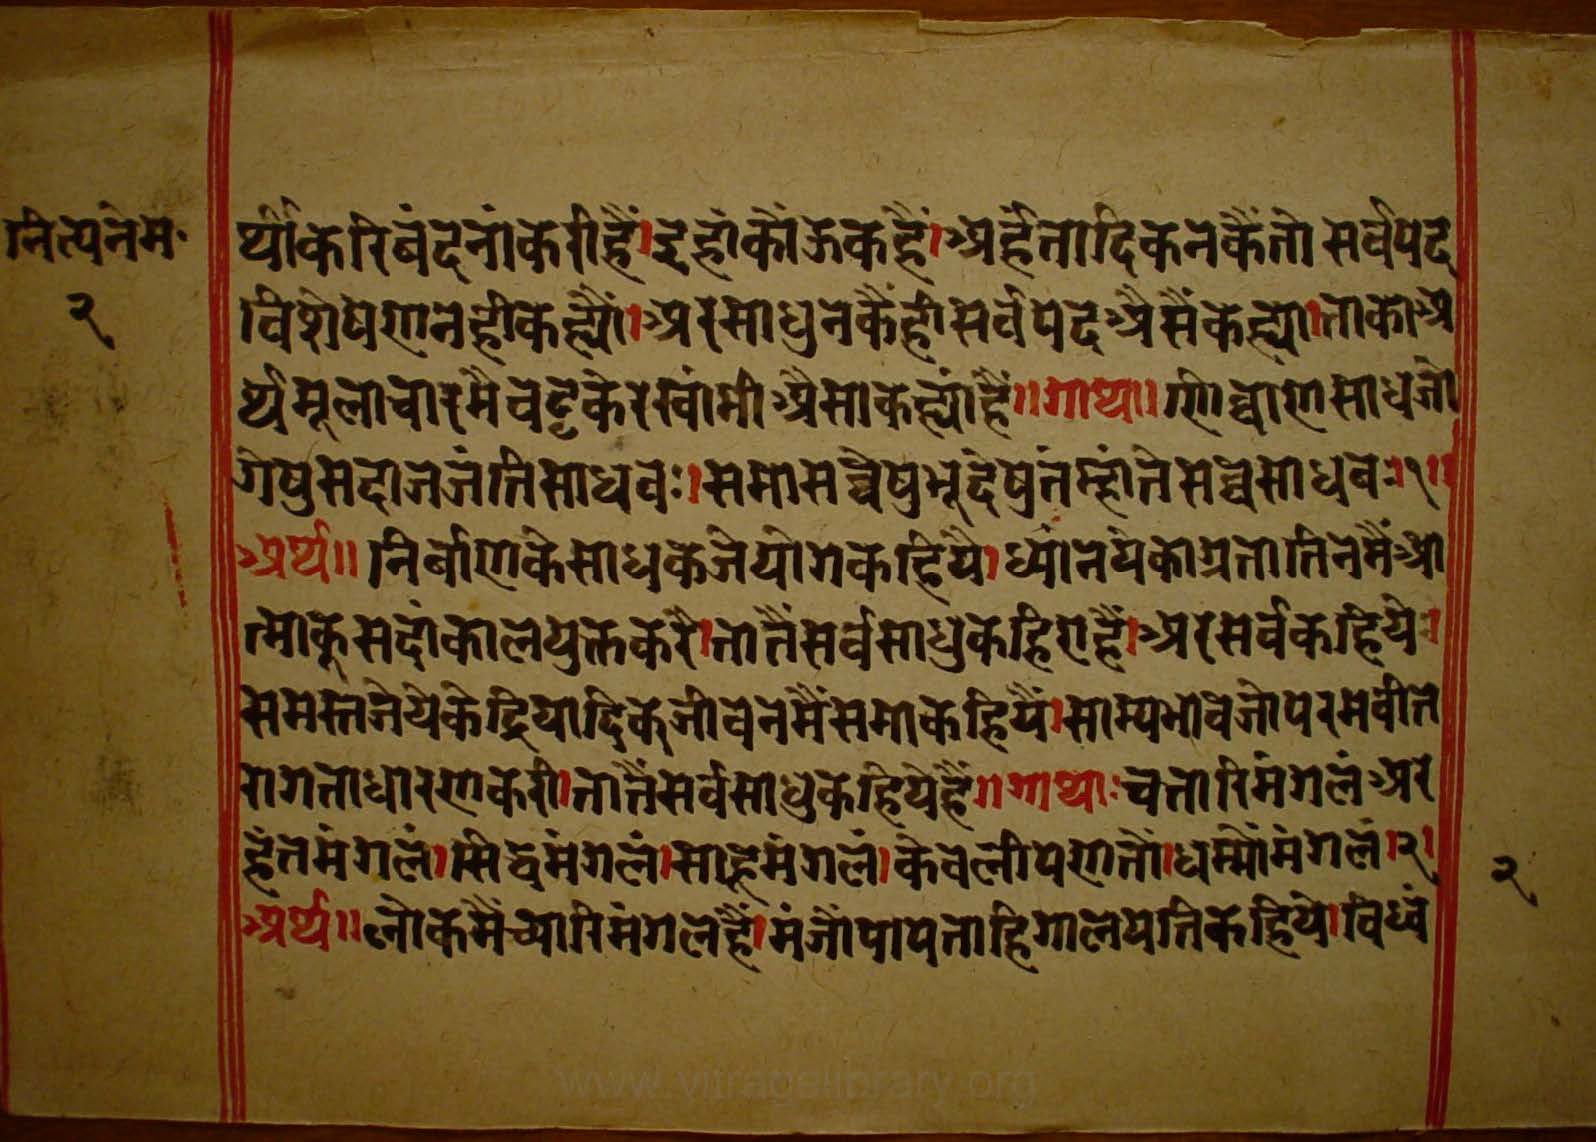 नित्यनेम॰
२
र्थीकरि बंदनां करी है। इहां कोंऊ कहै। अर्हंतादिकनकैं तो सर्व पद
विशेषण नही कह्यौं। अर साधुनकैं ही सर्व पद अैसैं कह्यो। ताको अ
र्थ मूलाचारमै वट्टकेर स्वांमी अैसा कह्यां हैं॥ गाथा॥ णिव्वाण साधजो
गेषु सदा जजंति साधवः। समा सव्वेषु भूदेषु तंम्हां ते सव्व साधवः।१।
अर्थ॥ निर्बाणके साधक जे योग कहियै। ध्यांन येकाग्रता तिनमैं आ
त्माकू सदां काल युक्त करै। तातैं सर्व साधु कहिए है। अर सर्व कहिये।
समस्त जे येकेंद्रियादिक जीवनमैं समा कहियैं। साम्यभाव जो परम वीत
रागता धारण करी। तातैं सर्व साधु कहिये हैं॥ गाथाः चतारि मंगलं अर
हंत मंगलं। सिद्व मंगलं। साहू मंगलं। केवली पणतों। धम्मों मंगलं।२।
अर्थ॥ लोकमैं च्यारि मंगल हैं। मं जो पाप ताहि गालयति कहिये। विध्वं
२
www.vitragelibrary.org